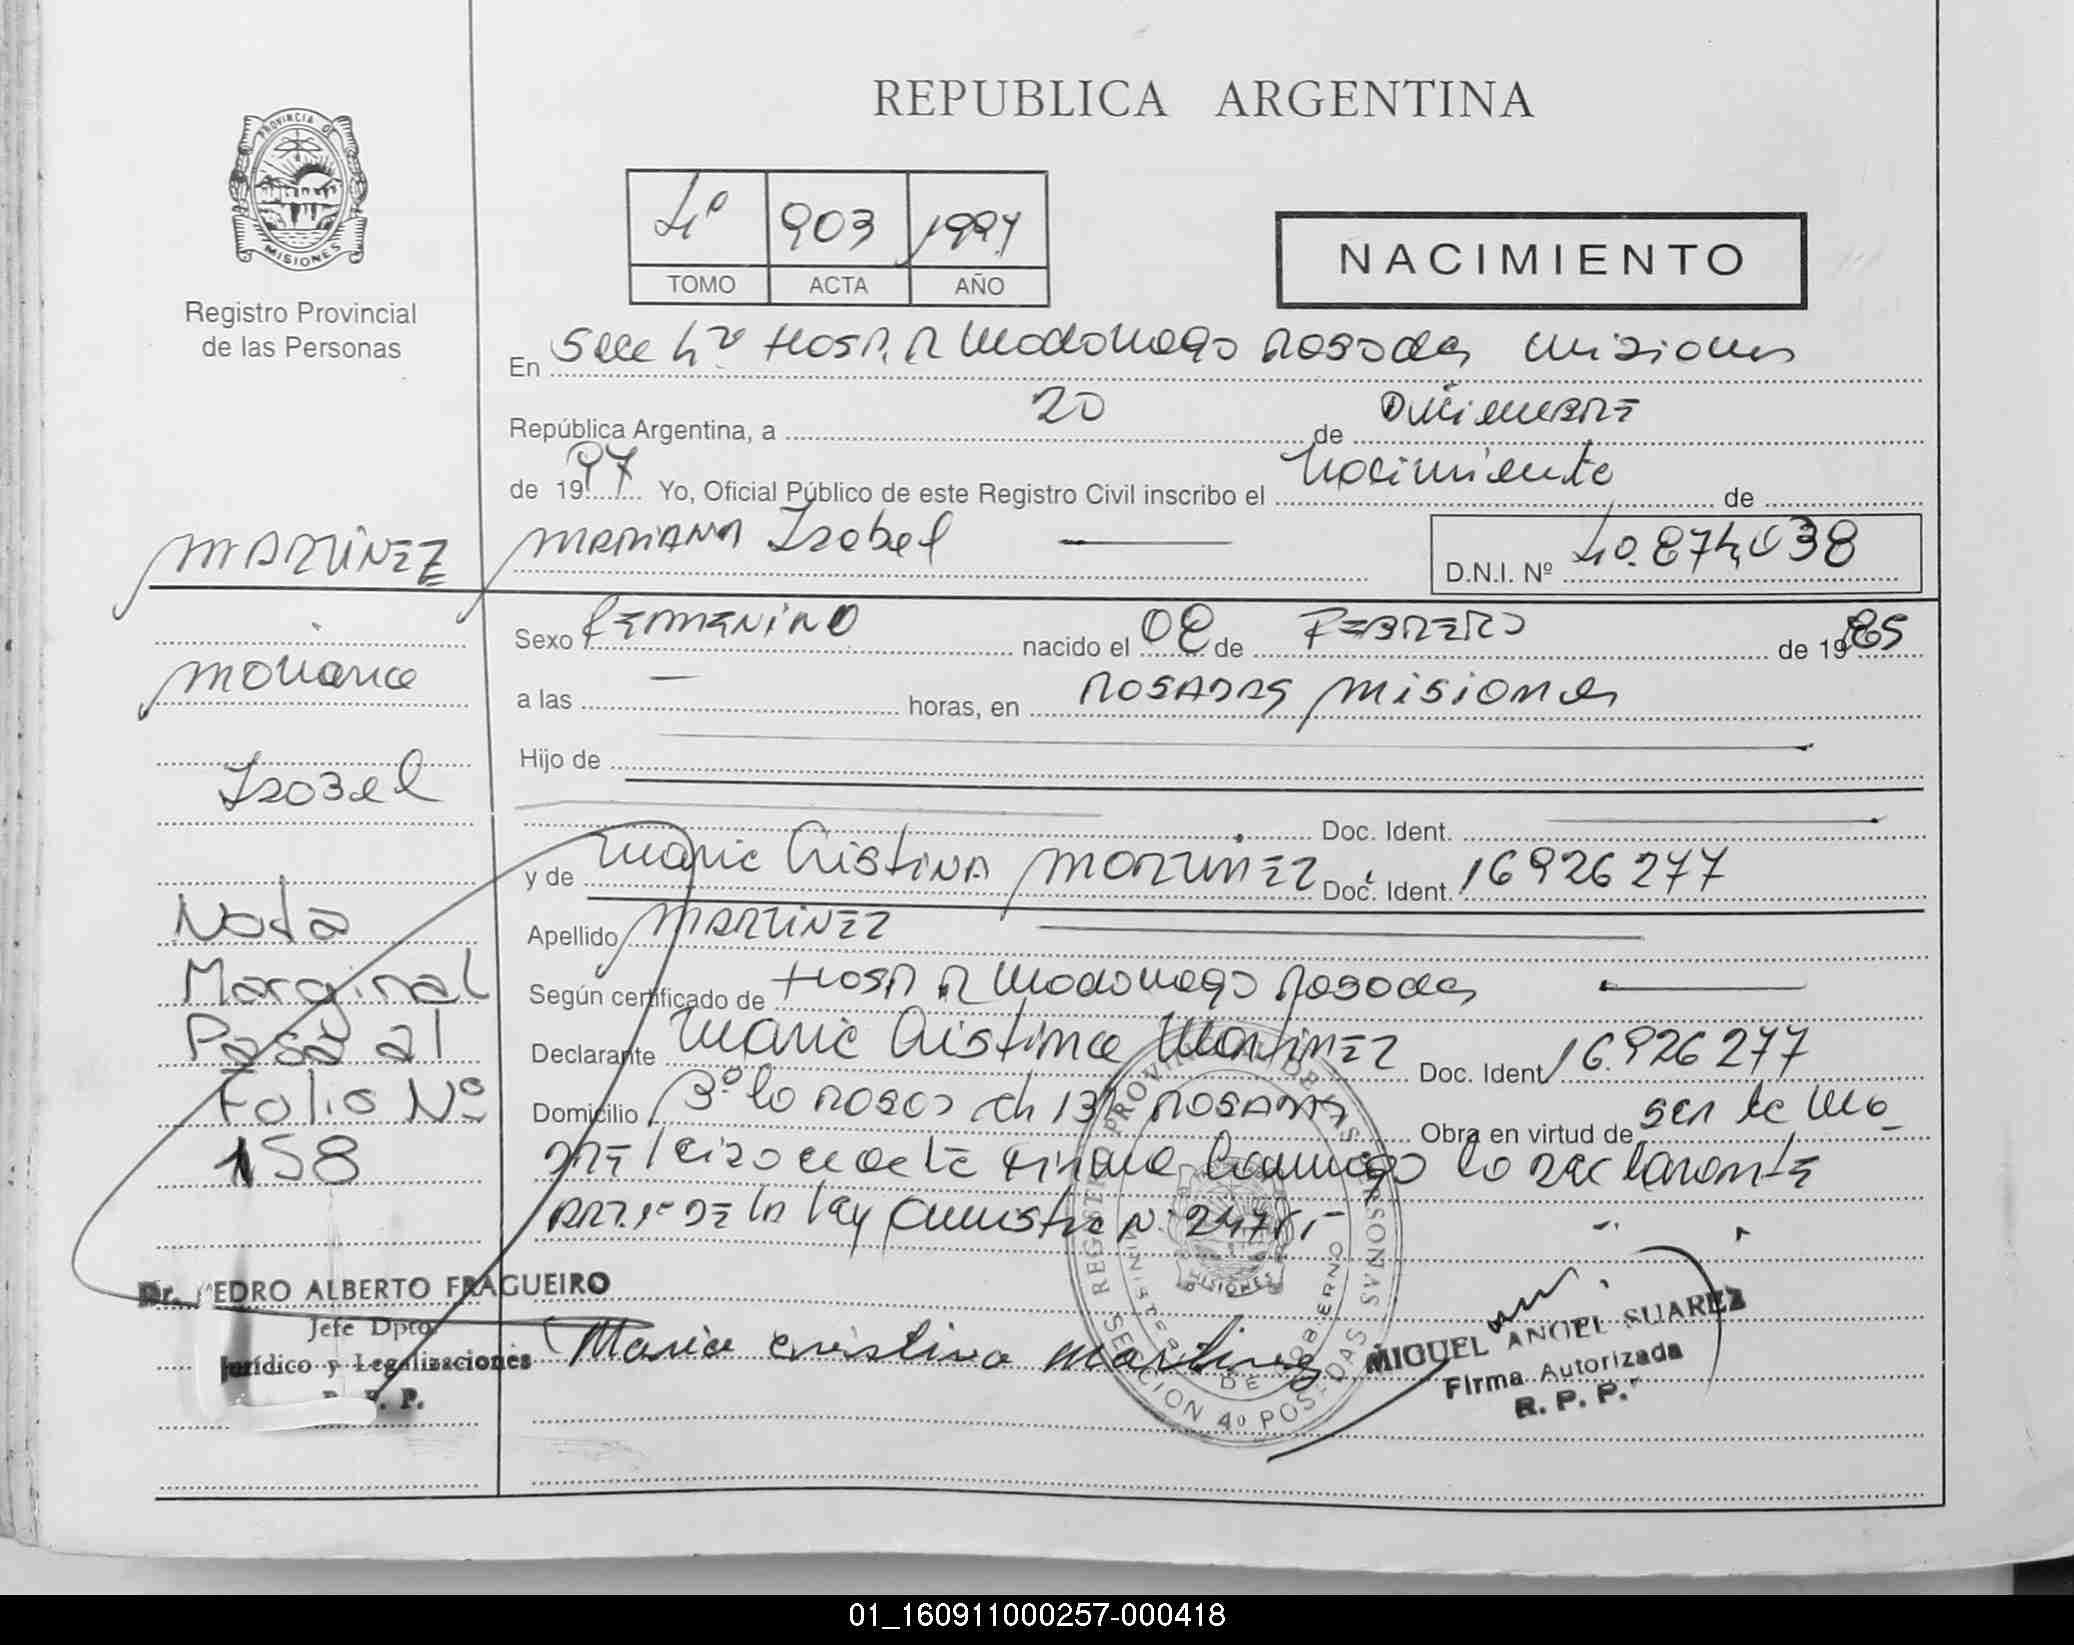 REPUBLICA ARGENTINA
PROVINCIA DE MISIONES
Registro Provincial
de las Personas
4º 903 1997
TOMO ACTA AÑO
NACIMIENTO
En Secc 4º Hosp. R Madariaga Posadas Misiones
República Argentina, a 20 de Diciembre
de 1997 Yo, Oficial Público de este Registro Civil inscribo el Nacimiento de
MARTINEZ MARIANA Isabel D.N.I. Nº 40.874.038
Sexo FEMENINO nacido el 08 de FEBRERO de 1985
Mariana
a las — horas, en POSADAS MISIONES
Isabel
Hijo de
Doc. Ident.
y de Maria Cristina MARTINEZ Doc. Ident. 16926277
Nota
Marginal
Pasa al
Folio Nº
158
Apellido MARTINEZ
Según certificado de Hosp R Madariaga Posadas
Declarante Maria Cristina Martinez Doc. Ident 16.926277
Domicilio POSADAS Obra en virtud de ser la Ma_
DRE la declarante
ART. 1º DE la ley Nº
Dr. PEDRO ALBERTO FRAGUEIRO
Jefe Dpto.
Jurídico y Legalizaciones
R. P. P.
Maria Cristina Martinez
REGISTRO PROVINCIAL DE LAS PERSONAS
MINISTERIO DE GOBIERNO
MISIONES
SECCION 4º POSADAS
MIGUEL ANGEL SUAREZ
Firma Autorizada
R. P. P.
01_160911000257-000418